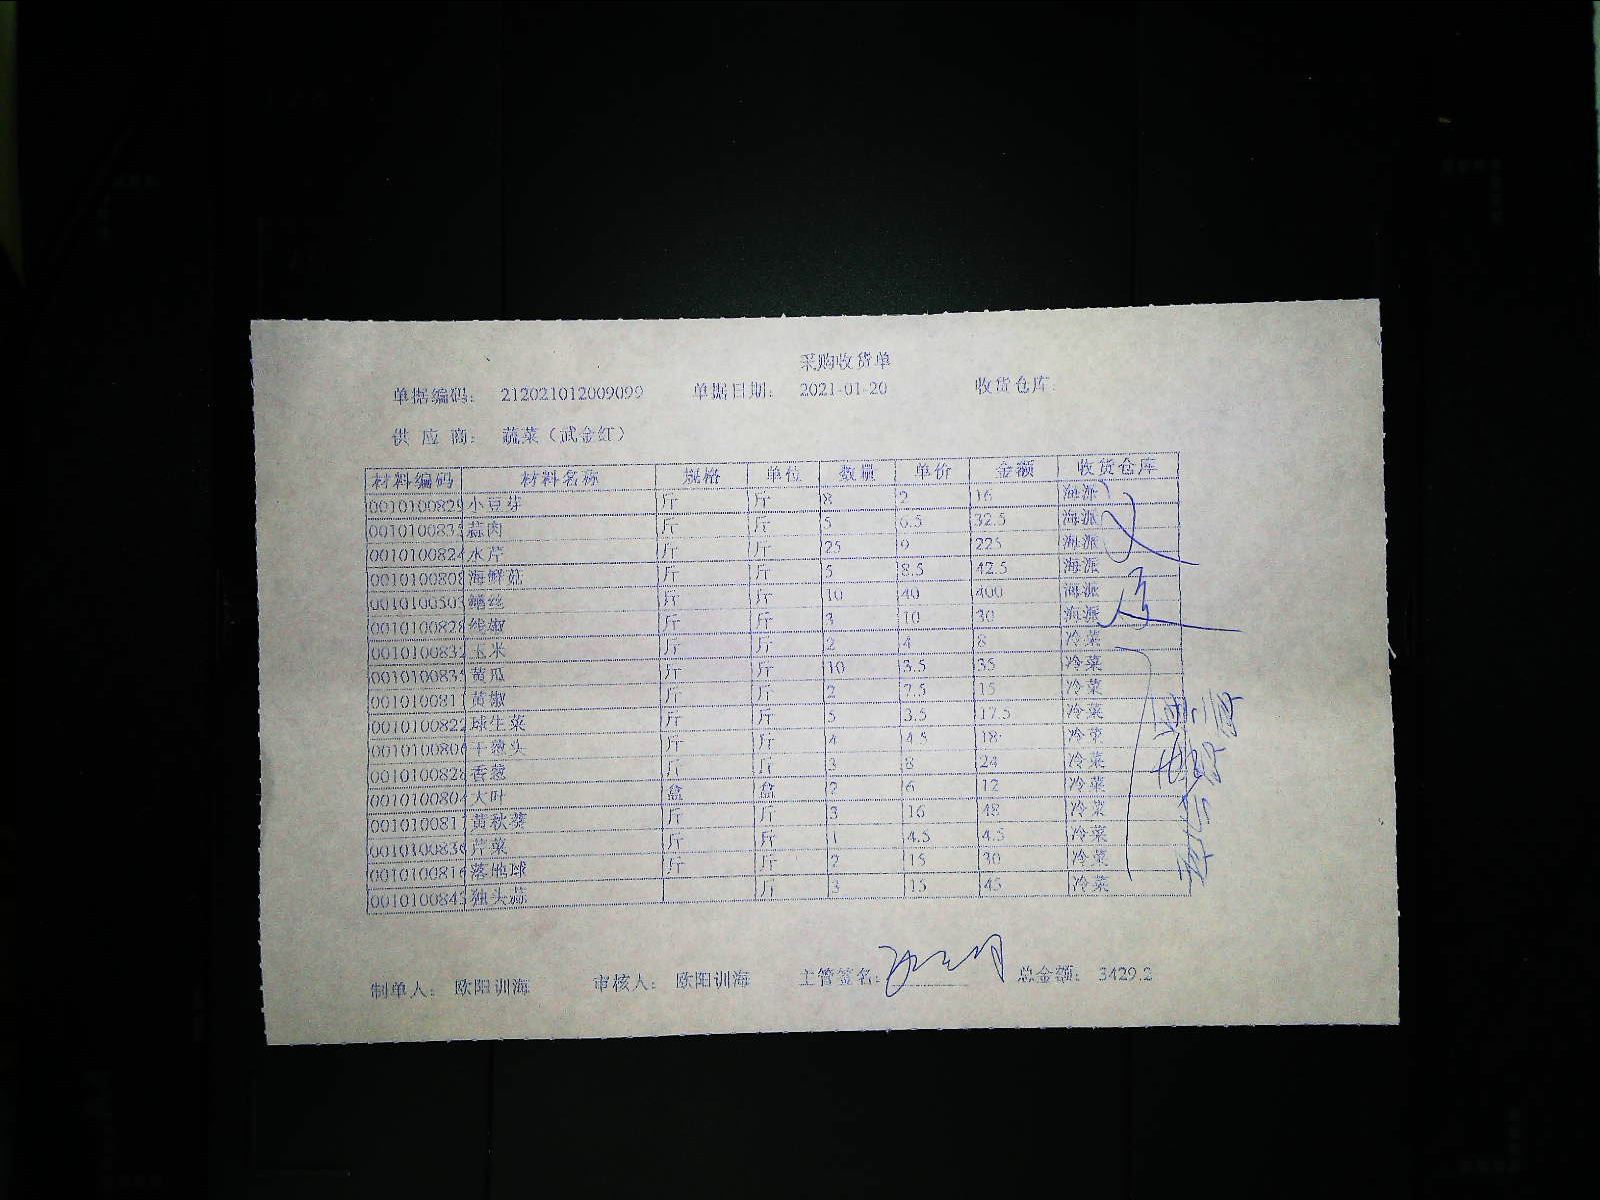 采购收货单
单据编码: 212021012009099 单据日期: 2021-01-20 收货仓库:
供 应 商: 蔬菜（武金红）
材料编码 材料名称 规格 单位 数量 单价 金额 收货仓库
0010100829 小豆芽 斤 斤 8 2 16 海派
001010083 蒜肉 斤 斤 5 6.5 32.5 海派
0010100824 水芹 斤 斤 25 9 225 海派
0010100808 海鲜菇 斤 斤 5 8.5 42.5 海派
0010100503 鳝丝 斤 斤 10 40 400 海派
0010100828 线椒 斤 斤 3 10 30 海派
0010100832 玉米 斤 斤 2 4 8 冷菜
001010083 黄瓜 斤 斤 10 3.5 35 冷菜
001010081 黄椒 斤 斤 2 7.5 15 冷菜
0010100822 球生菜 斤 斤 5 3.5 17.5 冷菜
001010080 干葱头 斤 斤 4 4.5 18 冷菜
0010100828 香葱 斤 斤 3 8 24 冷菜
0010100804 大叶 盒 盒 2 6 12 冷菜
001010081 黄秋葵 斤 斤 3 16 48 冷菜
001010083 芹菜 斤 斤 1 4.5 4.5 冷菜
0010100816 落地球 斤 斤 2 15 30 冷菜
001010084 独头蒜 斤 3 15 45 冷菜
制单人: 欧阳训海 审核人: 欧阳训海 主管签名: 总金额: 3429.2